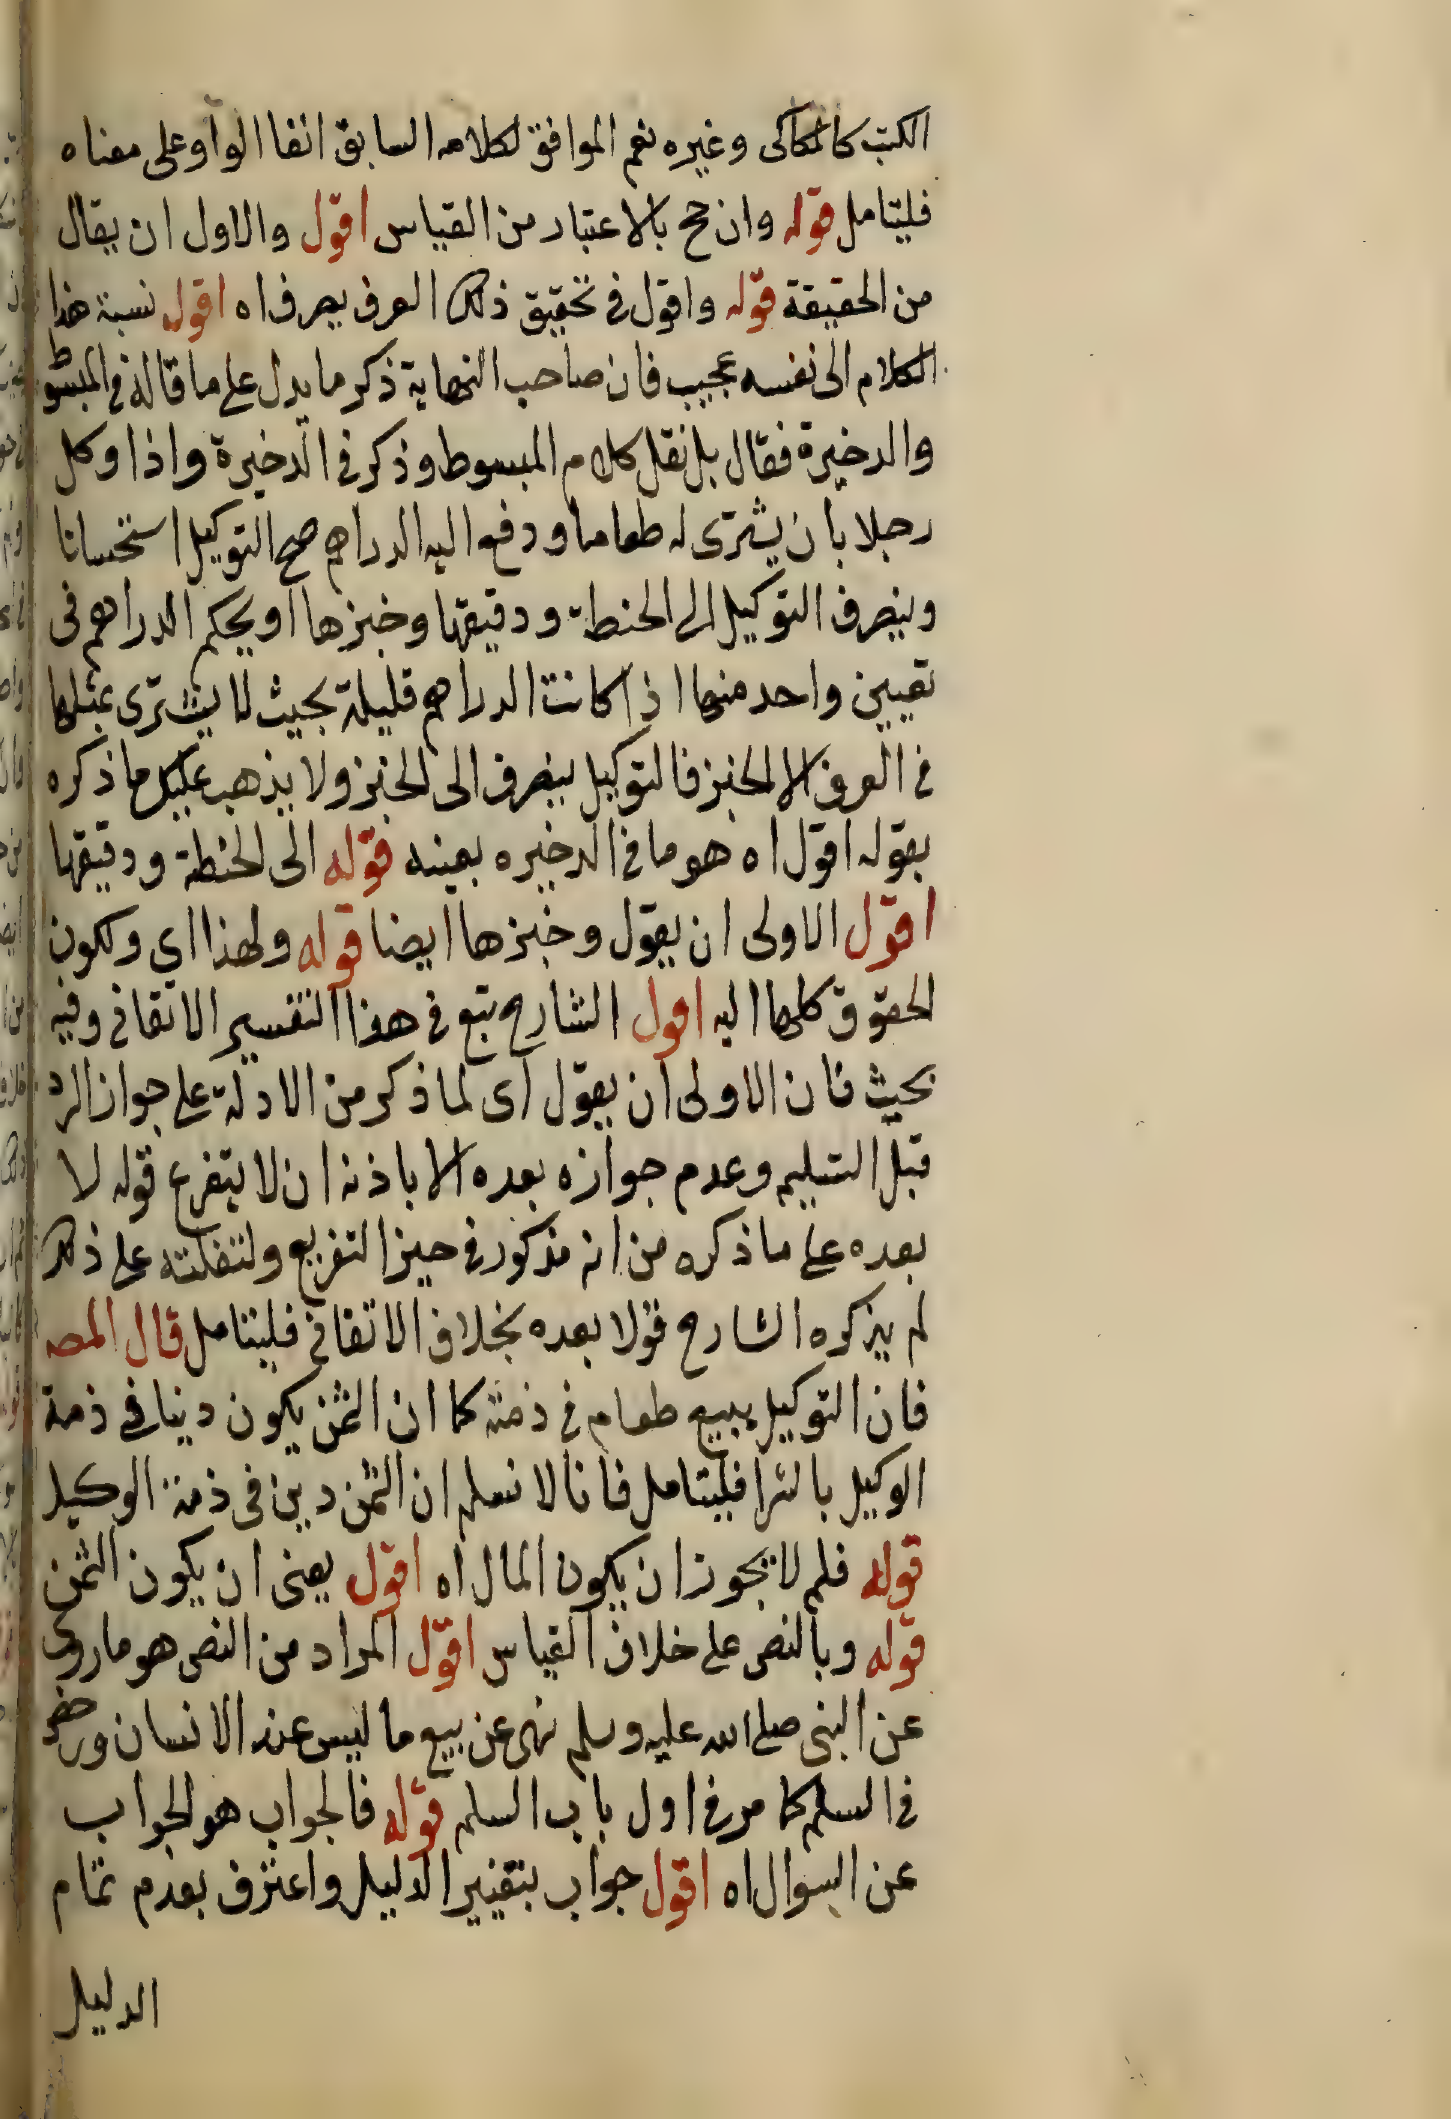 الكتب كالكاكى وغيره نعم الموافق لكلامه السابق انفا الواو على معناه
فليتامل قوله وان حج بالاعتبار من القياس اقول والاول ان يقال
من الحقيقة قوله واقول فى تحقيق ذلك العرف يصرف اه اقول نسبة هذا
الكلام الى نفسه عجيب فان صاحب النهاية ذكر ما يدل على ما قاله فى المبسوط
والدخيرة فقال بل نقل كلام المبسوط وذكر فى الدخيرة واذا وكل
رجلا بان يشترى له طعاما ودفع اليه الدراهم صح التوكيل استحسانا
وينصرف التوكيل الى الحنطة ودقيقها وخبزها او يحكم الدراهم فى
تعيين واحد منها اذا كانت الدراهم قليلة بحيث لا يشترى بمثلها
فى العرف الا الخبز فالتوكيل ينصرف الى الخبز ولا يذهب عليك ما ذكره
بقوله اقول اه هو ما فى الدخيره بعينه قوله الى الحنطة ودقيقها
اقول الاولى ان يقول وخبزها ايضا قوله ولهذا اي ولكون
الحقوق كلها اليه اقول الشارح تبع فى هذا التفسير الاتقانى وفيه
بحيث فان الاولى ان يقول اى لما ذكر من الادلة على جواز الرد
قبل التسليم وعدم جوازه بعده الا باذنه ان لا يتفرع قوله لا
بعده على ما ذكره من انه مذكور فى حيز التفريع ولتفلته على ذلك
لم يذكره الشارح قولا بعده بخلاف الاتقانى فليتامل قال المصه
فان التوكيل ببيع طعام فى ذمته كما ان الثمن يكون دينا فى ذمة
الوكيل بالشرا فليتامل فانا لا نسلم ان الثمن دين فى ذمة الوكيل
قوله فلم لا يجوز ان يكون المال اه اقول يعنى ان يكون الثمن
قوله وبالنص على خلاف القياس اقول المراد من النص هو ما روى
عن النبى صلى الله عليه وسلم نهى عن بيع ما ليس عند الانسان ورخص
فى السلم كما مر فى اول باب السلم قوله فالجواب هو الجواب
عن السوال اه اقول جواب بتغيير الدليل واعترف بعدم تمام
الدليل